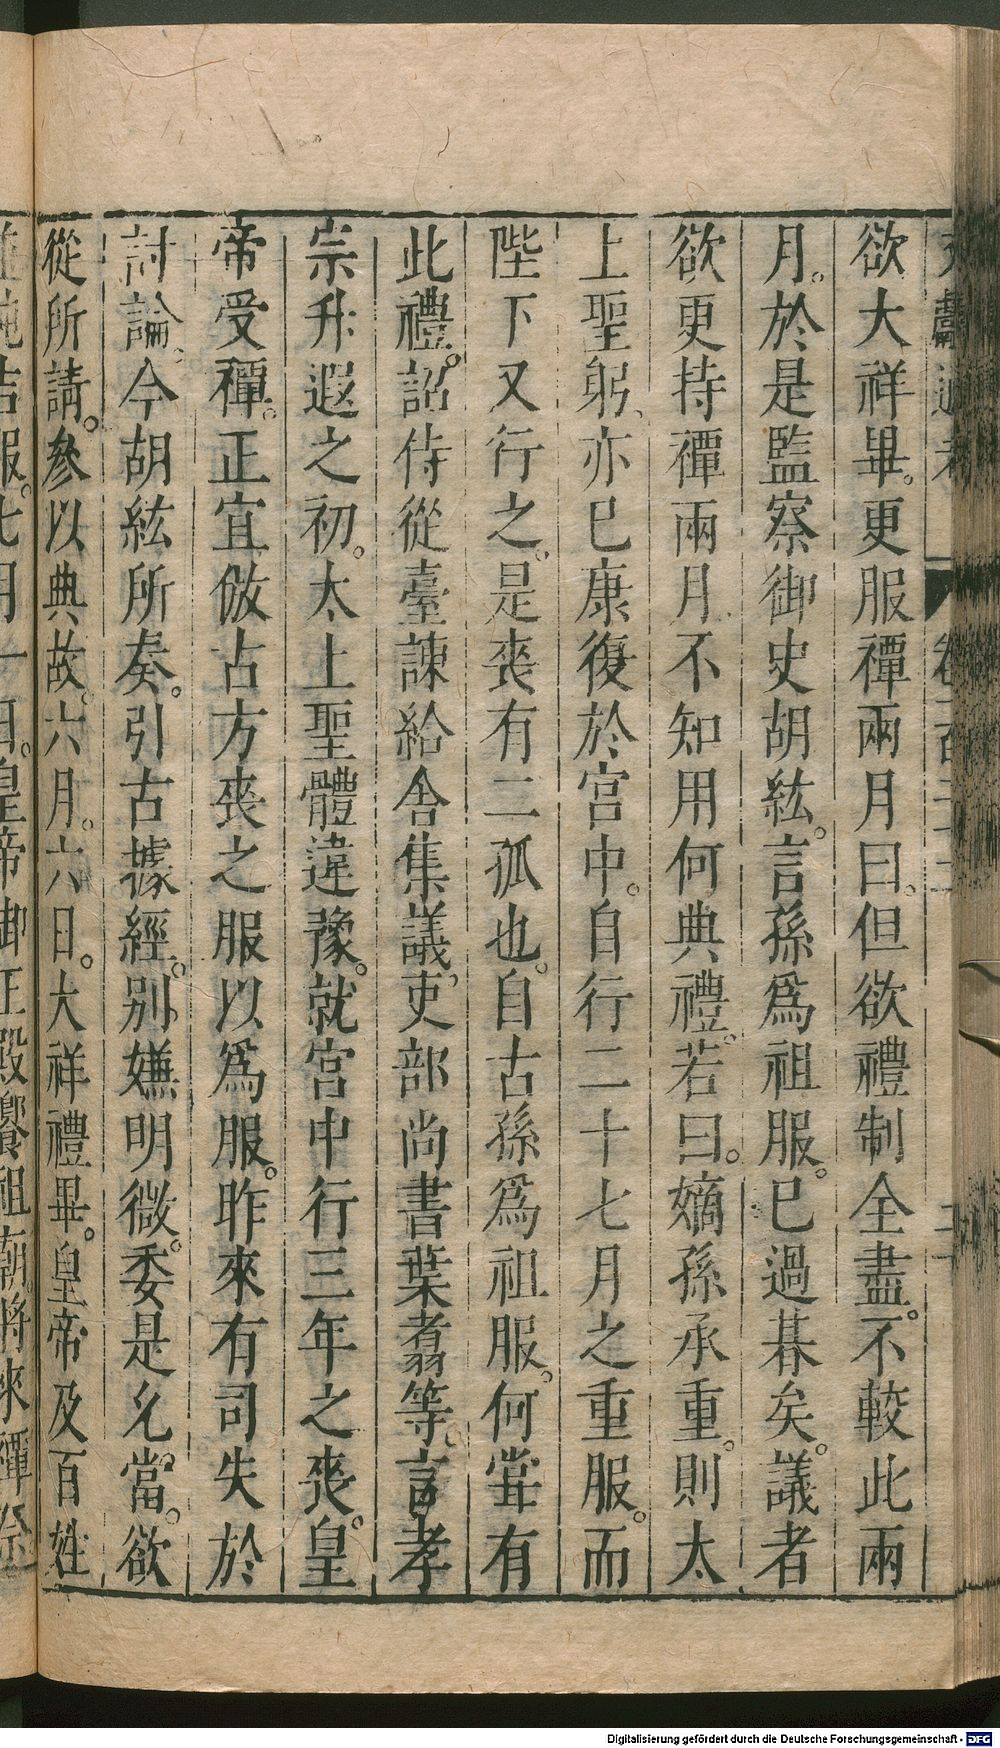 欲大祥畢。更服禫兩月曰。但欲禮制全盡。不較此兩
月。於是監察御史胡紘。言孫爲祖服。已過朞矣。議者
欲更持禫兩月不知用何典禮。若曰。嫡孫承重。則太
上聖躬、亦已康復於宮中。自行二十七月之重服。而
陛下又行之。是喪有二孤也。自古孫爲祖服。何嘗有
此禮。詔侍從臺諫給舍集議。吏部尚書葉翥等。言孝
宗升遐之初。太上聖體違豫。就宮中行三年之喪。皇
帝受禪。正宜倣古方喪之服以爲服。昨來有司失於
討論。今胡紘所奏。引古據經。別嫌明微。委是允當。欲
從所請。參以典故。六月。六日。大祥禮畢。皇帝及百姓
服。七月一日。皇帝御正殿饗祖廟。將來禫祭
Digitalisierung gefördert durch die Deutsche Forschungsgemeinschaft - DFG